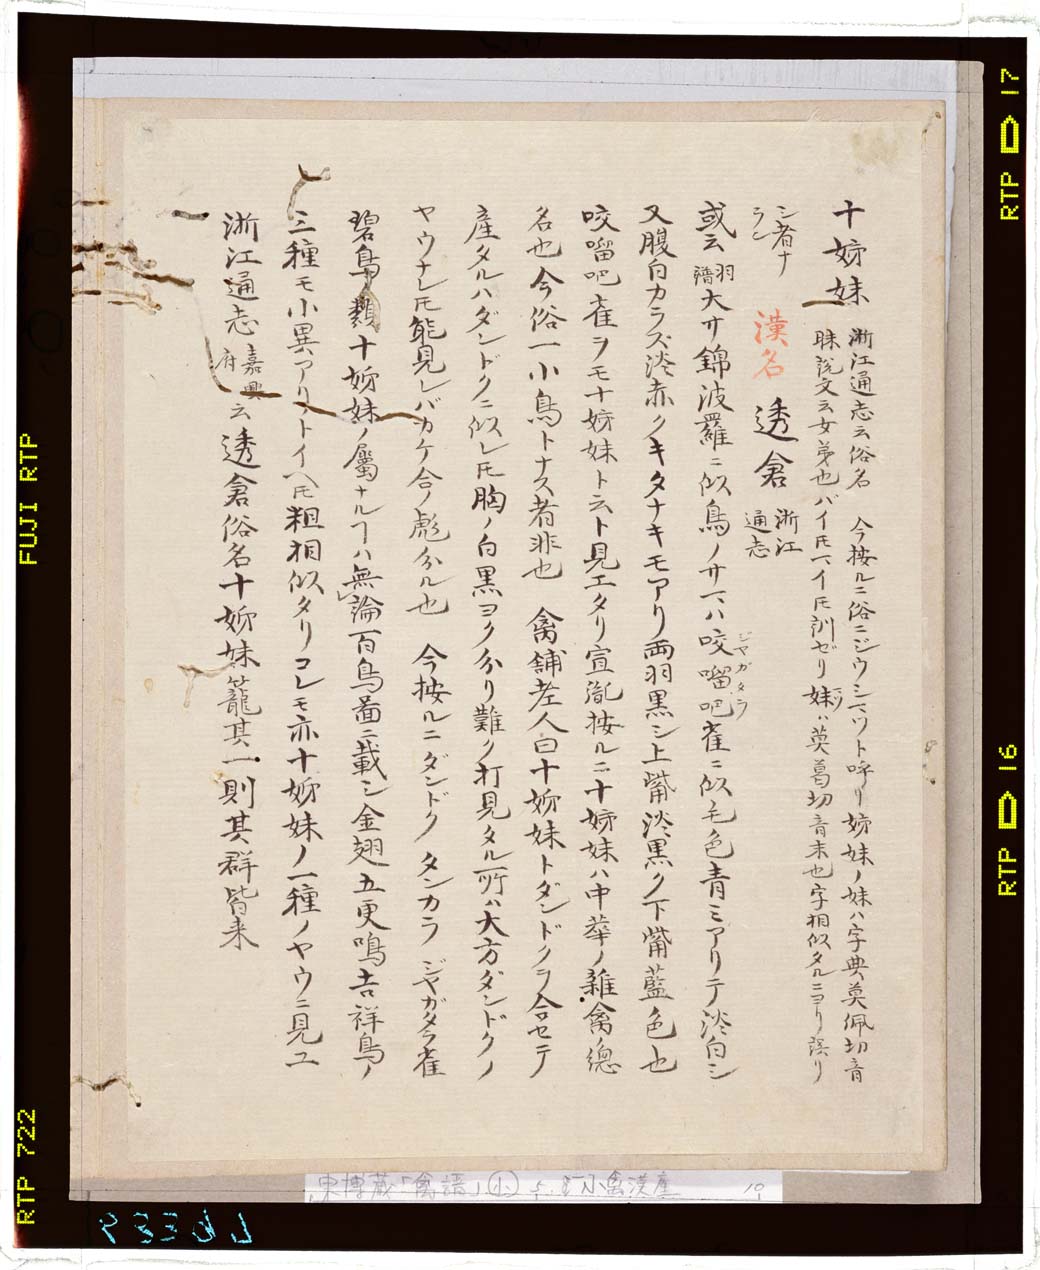 十姉妹
浙江通志云俗名 今按ルニ俗ニジウシマツト呼リ姉妹ノ妹ハ字典莫佩切音
昧説文云女弟也バイ𪜈マイ𪜈訓ゼリ妺ハ莫葛切音末也字相似タルニヨリ誤リ
シ者ナ
ラン
漢名 透倉 浙江
通志
或云翦羽大サ錦波羅ニ似鳥ノサマハ咬𠺕吧雀ニ似毛色青ミアリテ淡白シ
ジヤガタラ
又腹白カラズ淡赤クキタナキモアリ両羽黒シ上觜淡黒ク下觜藍色也
咬𠺕吧雀ヲモ十姉妹ト云ト見エタリ宣胤按ルニ十姉妹ハ中華ノ雑禽ノ総
名也今俗一小鳥トナス者非也 禽舗老人曰十姉妹トダンドクラ合セテ
産タルハダンドクニ似レ𪜈胸ノ白黒ヨク分リ難ク打見タル所ハ大方ダンドクノ
ヤウナレ𪜈能見レバカケ合ノ彪分ル也 今按ルニダンドク タンカラ ジヤガタラ雀
碧鳥ノ類十姉妹ノ屬ナルヿハ無論百鳥圖ニ載シ金翅五更鳴吉祥鳥ノ
三種モ小異アリトイヘ𪜈粗相似タリコレモ亦十姉妹ノ一種ノヤウニ見ユ
浙江通志嘉興府云透倉俗名十姉妹籠其一則其群皆来
東博蔵「禽譜」小 5. 小禽漢産 10
FUJI RTP
RTP 722
RTP 17
RTP 16